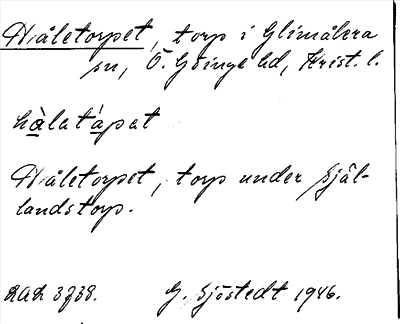 Håletorpet, torp i Glimåkra
sn, Ö. Göinge hd, Krist. l.
hålatåpat
Håletorpet, torp under Själ-
landstorp.
G. Sjöstedt 1946.